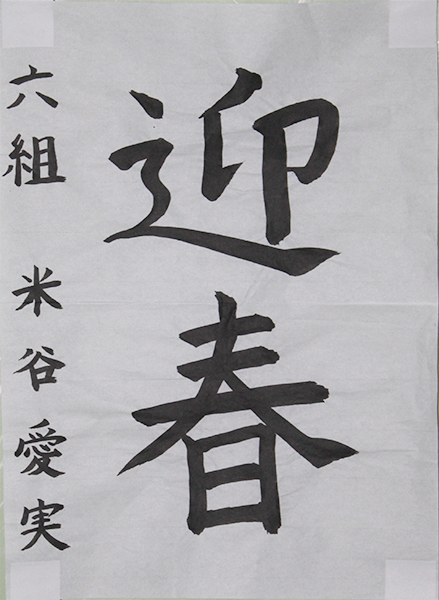 迎春
六組 米谷愛実